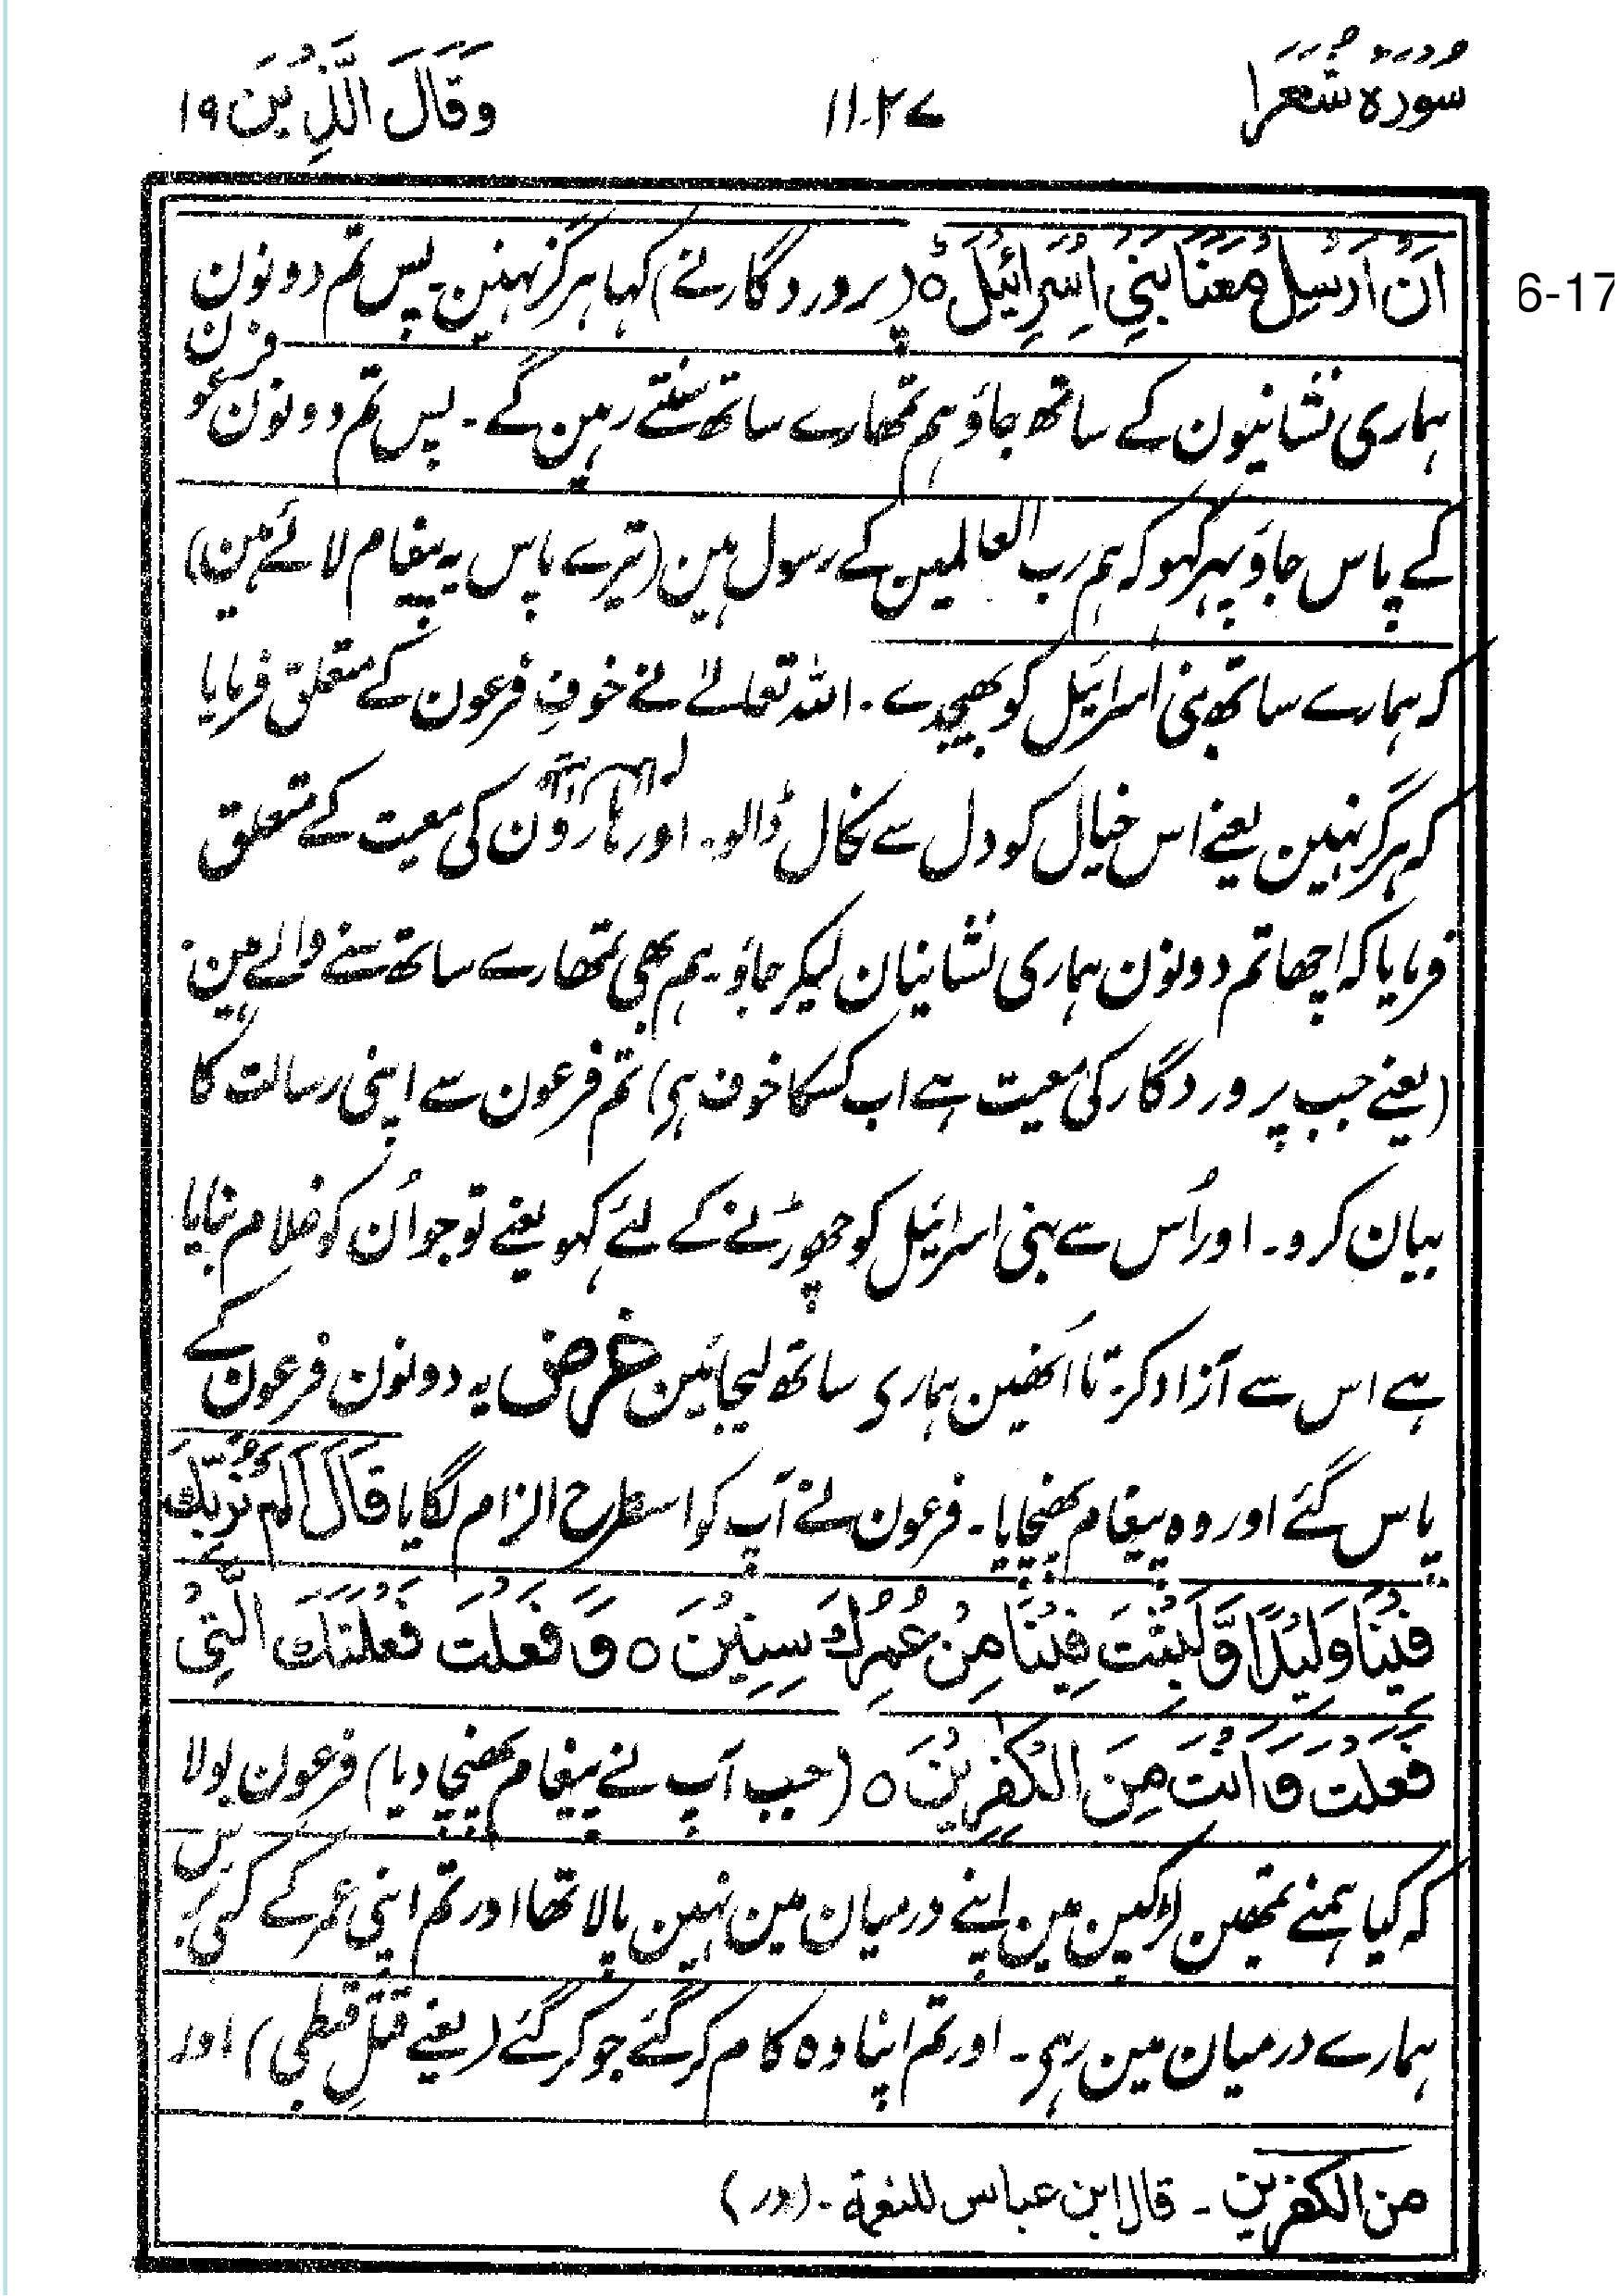 سُوۡرَۃُ شُعَرَا
۱۱۰۲۷
وَقَالَ الَّذِیۡنَ ۱۹
6-17
اَنۡ اَرۡسِلۡ مَعَنَا بَنِیۡۤ اِسۡرَآئِیۡلَ ؕ○ (پروردگار نے) کہا ہرگز نہین۔ پس تم دونون
ہماری نشانیون کے ساتھ جاؤ ہم تمھارے ساتھ سنتے رہین گے۔ پس تم دونون فرعون
کے پاس جاؤ پہر کہو کہ ہم رب العالمین کے رسول ہین (تیرے پاس یہ پیغام لائے ہین)
کہ ہمارے ساتھ بنی اسرائیل کو بھیجدے۔ اللہ تعالےٰ نے خوفِ فرعون کے متعلق فرمایا
کہ ہرگز نہین یعنے اس خیال کو دل سے نکال ڈالو۔ اور ہارون کی معیت کے متعلق
فرمایا کہ اچھا تم دونون ہماری نشانیان لیکر جاؤ۔ ہم بھی تمھارے ساتھ سننے والے ہین۔
(یعنے جب پروردگار کی معیت ہے اب کسکا خوف ہی) تم فرعون سے اپنی رسالت کا
بیان کرو۔ اور اُس سے بنی اسرائیل کو چھوڑنے کے لئے کہو یعنے تو جو اُن کو غلام بنایا
ہے اس سے آزاد کر۔ تا اُنھین ہماری ساتھ لیجائین غرض یہ دونون فرعون کے
پاس گئے اور وہ پیغام پھنچایا۔ فرعون نے آپ کو اسطرح الزام لگایا قَالَ اَلَمۡ نُرَبِّکَ
فِیۡنَا وَلِیۡدًا وَّلَبِثۡتَ فِیۡنَا مِنۡ عُمُرِكَ سِنِیۡنَ ○ وَ فَعَلۡتَ فَعۡلَتَكَ الَّتِیۡ
فَعَلۡتَ وَ اَنۡتَ مِنَ الۡکٰفِرِیۡنَ ○ (جب آپ نے پیغام پھنچا دیا) فرعون بولا
کہ کیا ہمنے تمھین لڑکپن مین اپنے درمیان مین نہین پالا تھا اور تم اپنی عمر کے کئی برس
ہمارے درمیان مین رہی۔ اور تم اپنا وہ کام کر گئے جو کر گئے (یعنے قتلِ قبطی) اور
من الکفرین۔ قال ابن عباس للنعمۃ۔ (در)